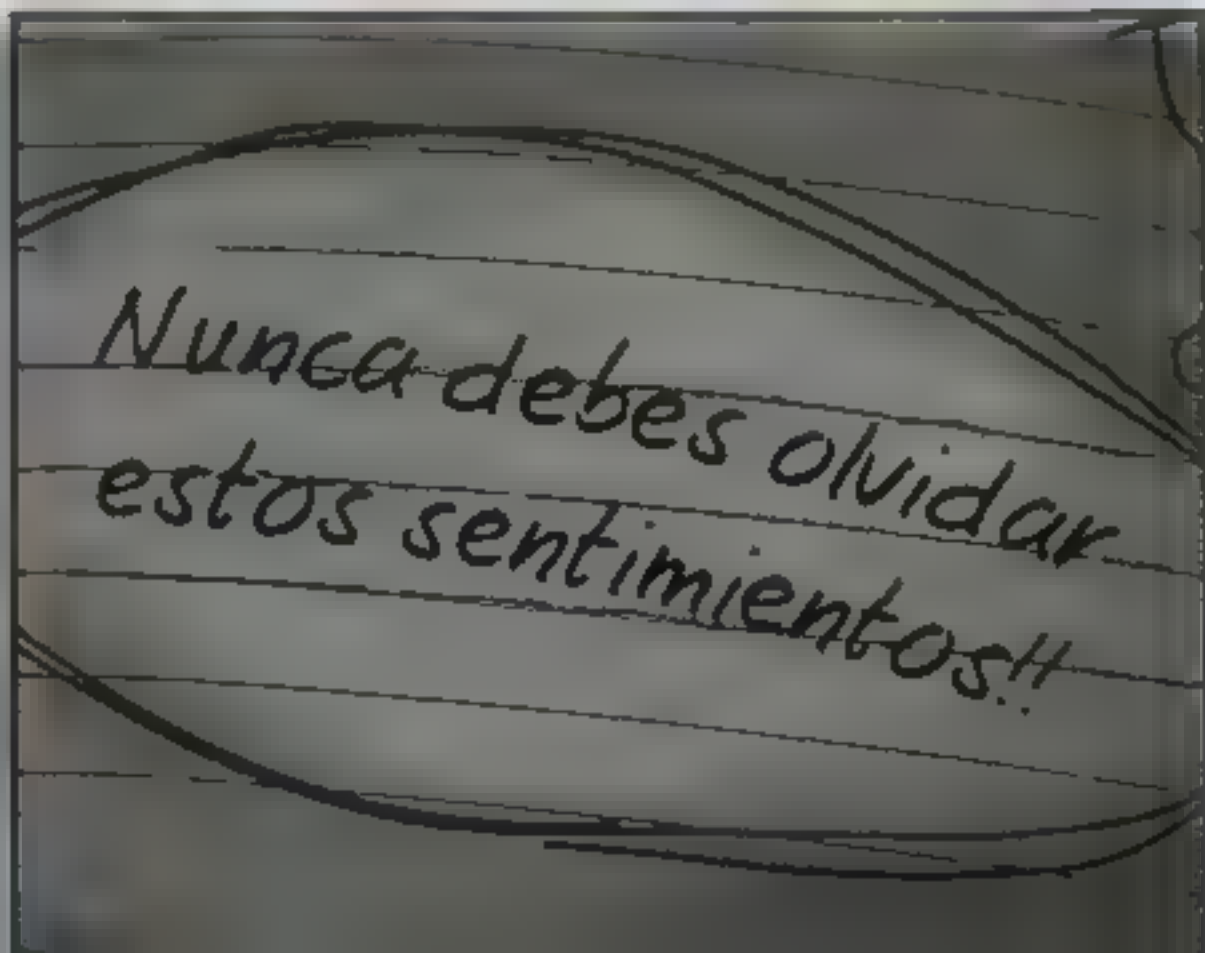 Nunca debes olvidar
estos sentimientos!!